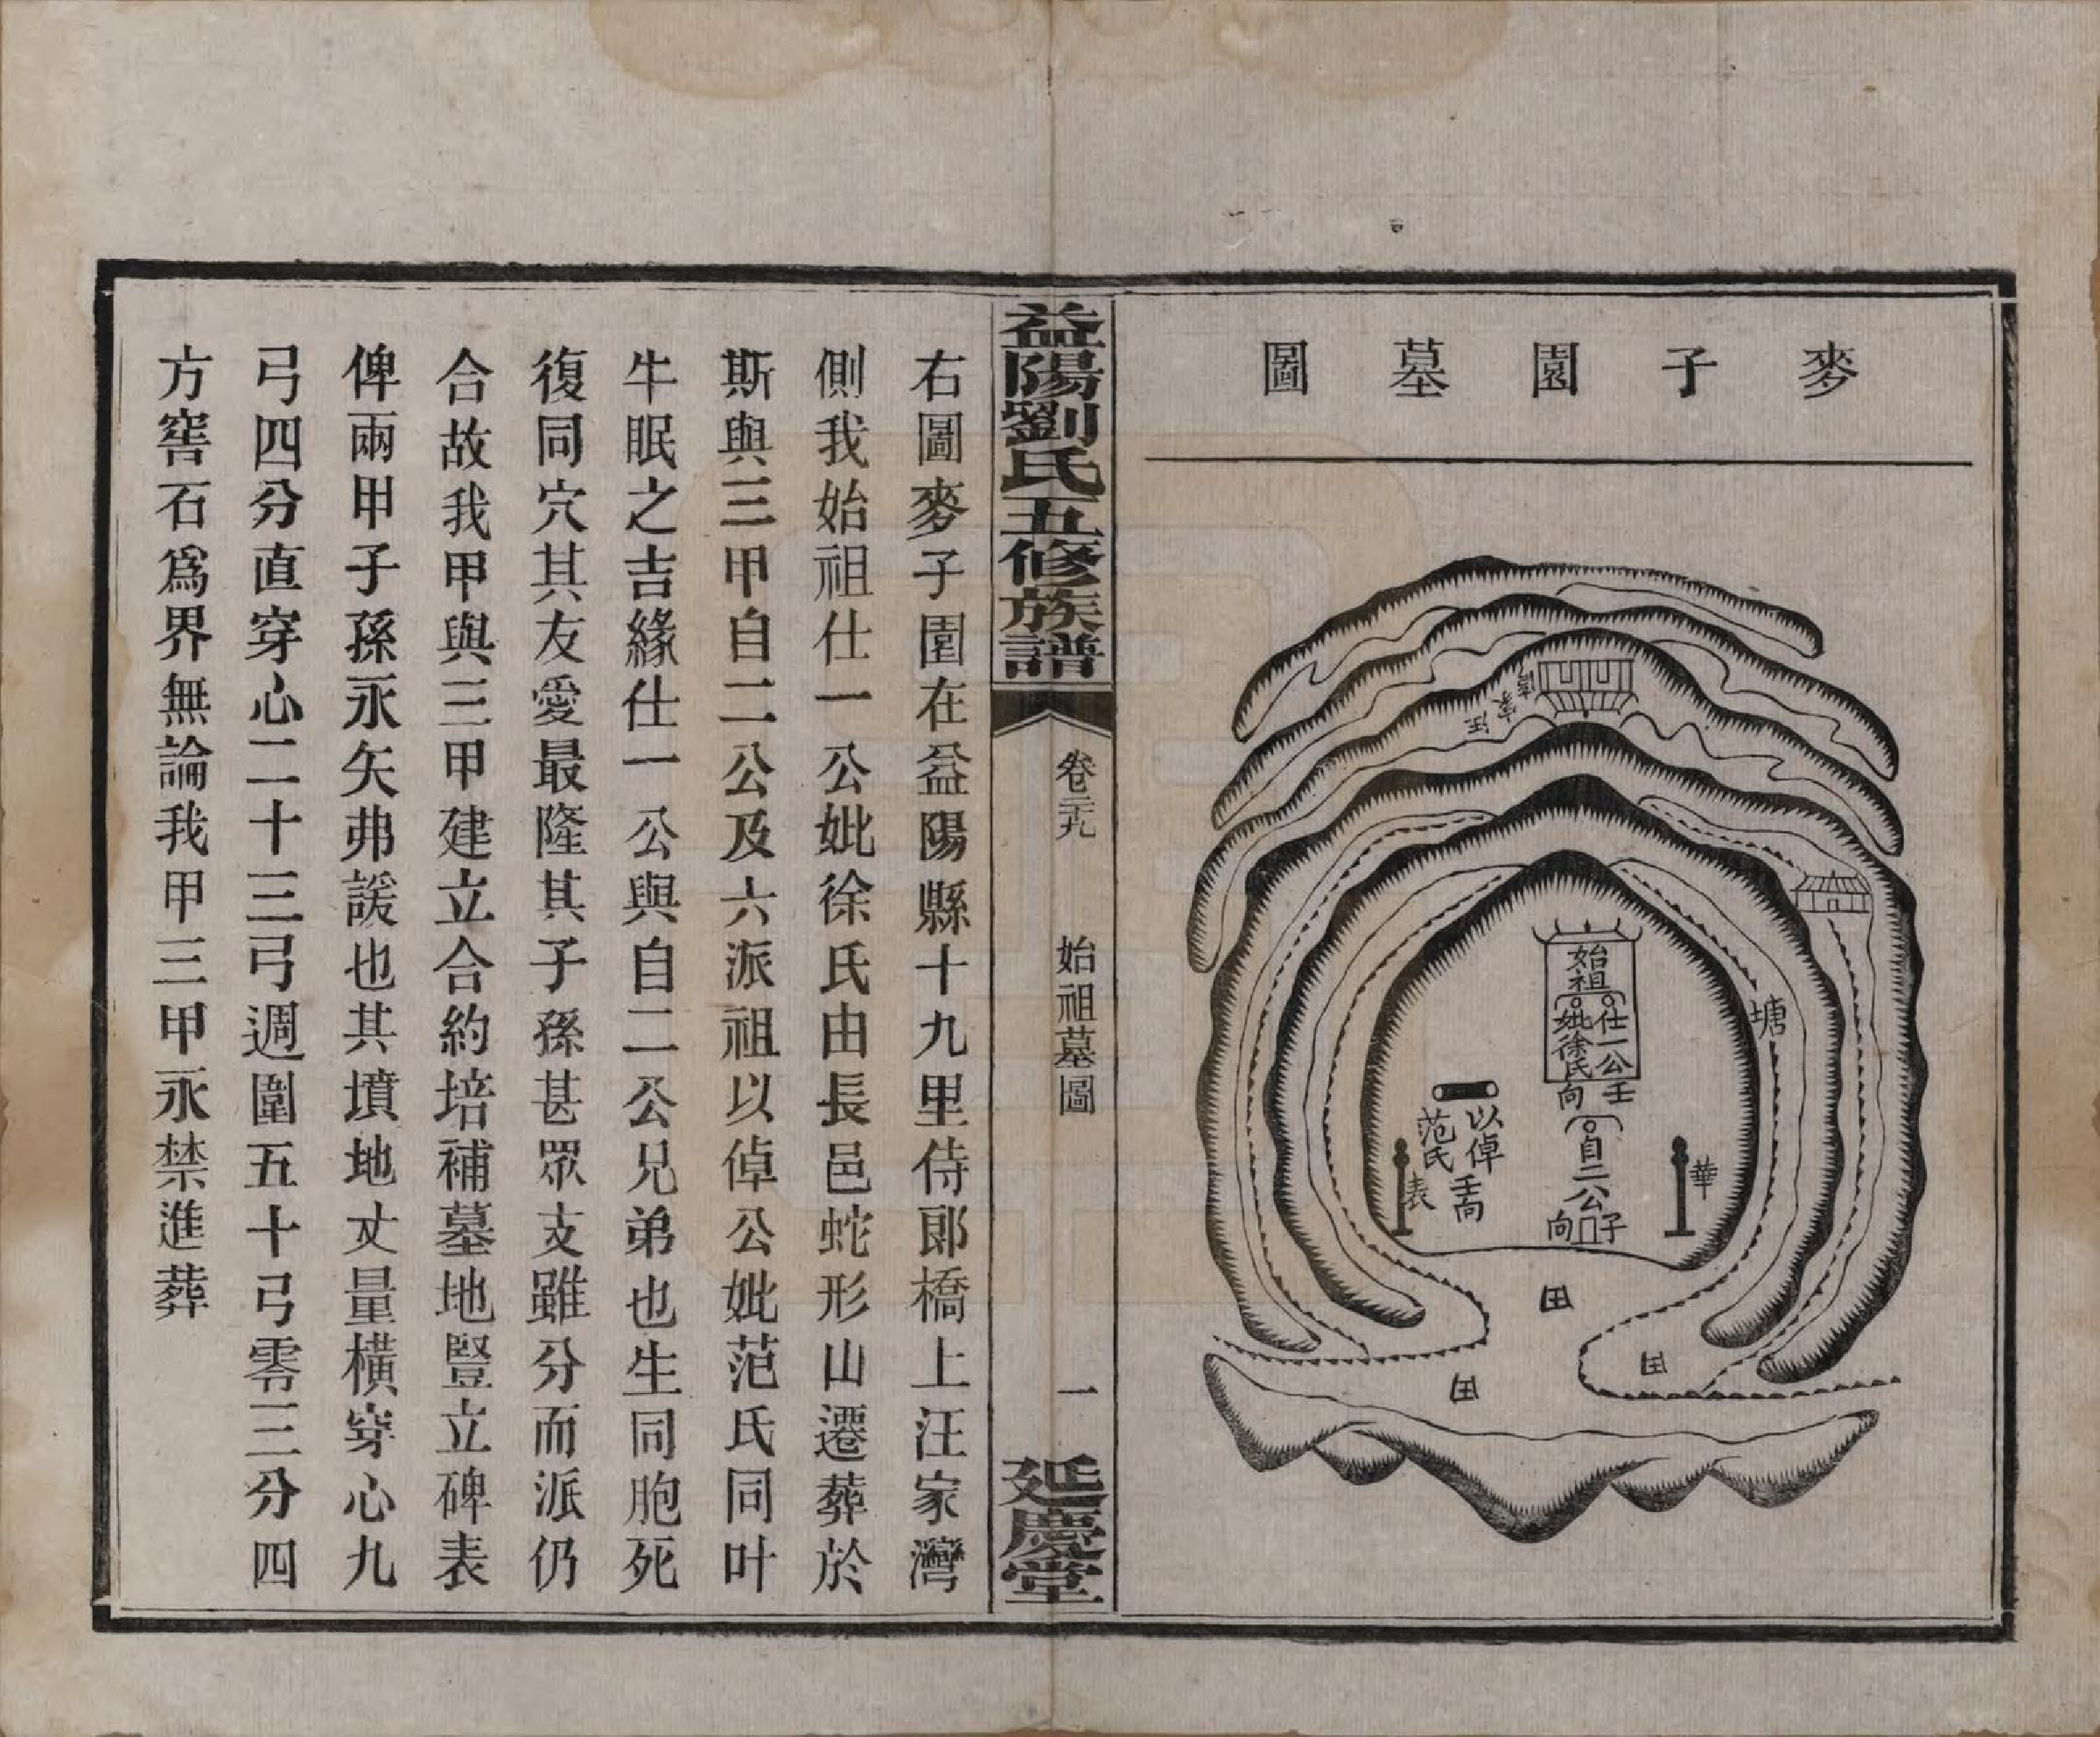 麥子園墓圖
汪家灣
塘
始祖
仕一公
妣徐氏
壬向
自二公
子向
以倬
范氏
壬向
華
表
田
田
田
益陽劉氏五修族譜
卷三十九
始祖墓圖
一
延慶堂
右圖麥子園在益陽縣十九里侍郎橋上汪家灣
側我始祖仕一公妣徐氏由長邑蛇形山遷葬於
斯與三甲自二公及六派祖以倬公妣范氏同叶
牛眠之吉緣仕一公與自二公兄弟也生同胞死
復同穴其友愛最隆其子孫甚眾支雖分而派仍
合故我甲與三甲建立合約培補墓地豎立碑表
俾兩甲子孫永矢弗諼也其墳地丈量橫穿心九
弓四分直穿心二十三弓週圍五十弓零三分四
方窖石爲界無論我甲三甲永禁進葬